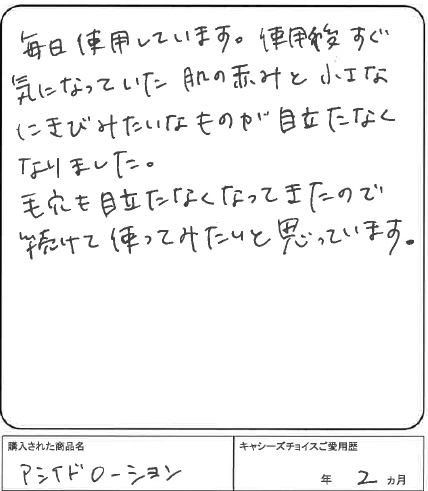 毎日使用しています。使用後すぐ
気になっていた肌の赤みと小さな
にきびみたいなものが目立たなく
なりました。
毛穴も目立たなくなってきたので
続けて使ってみたいと思っています。
購入された商品名
アシイドローション
キャシーズチョイスご愛用歴
年 2 ヵ月